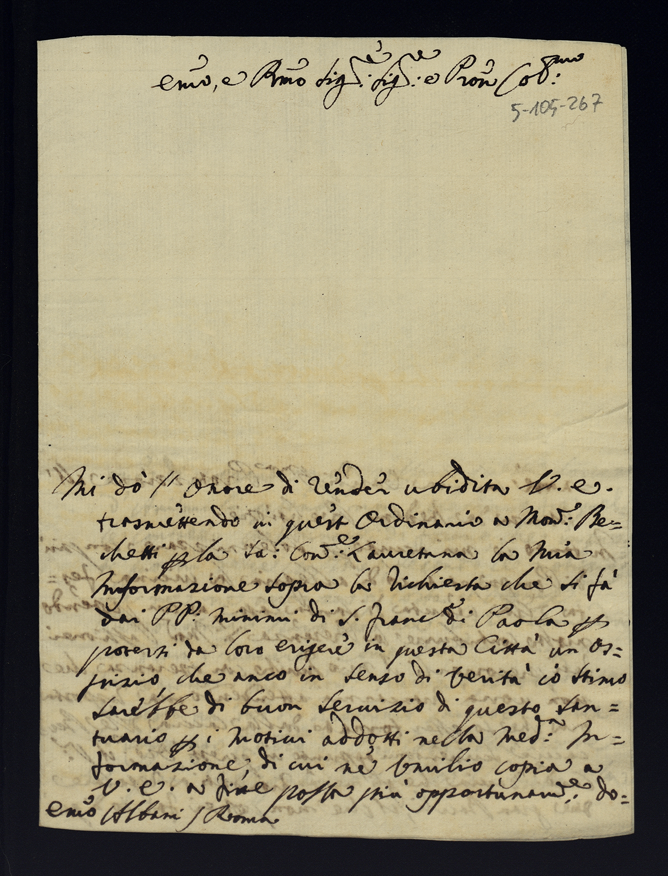 Emo, e Rmo Sigre: Sigre: e Pron Cobmo:
5-105-267
Mi dò l'Onore di render ubidita V. E.
trasmettendo in quest'Ordinario a Monre: Be=
chetti per la Sa: Conne: Lauretana la mia
Informazione sopra la richiesta che si fà
dai PP. Minimi di S. Francco di Paola per
potersi da loro erigere in questa Città un Os=
pizio che anco in senso di verità io stimo
sarebbe di buon servizio di questo San=
tuario per i motivi addotti nella medma In=
formazione, di cui ne umilio copia a
V. E. a fine possa più opportunamte: do=
Emo Albani / Roma